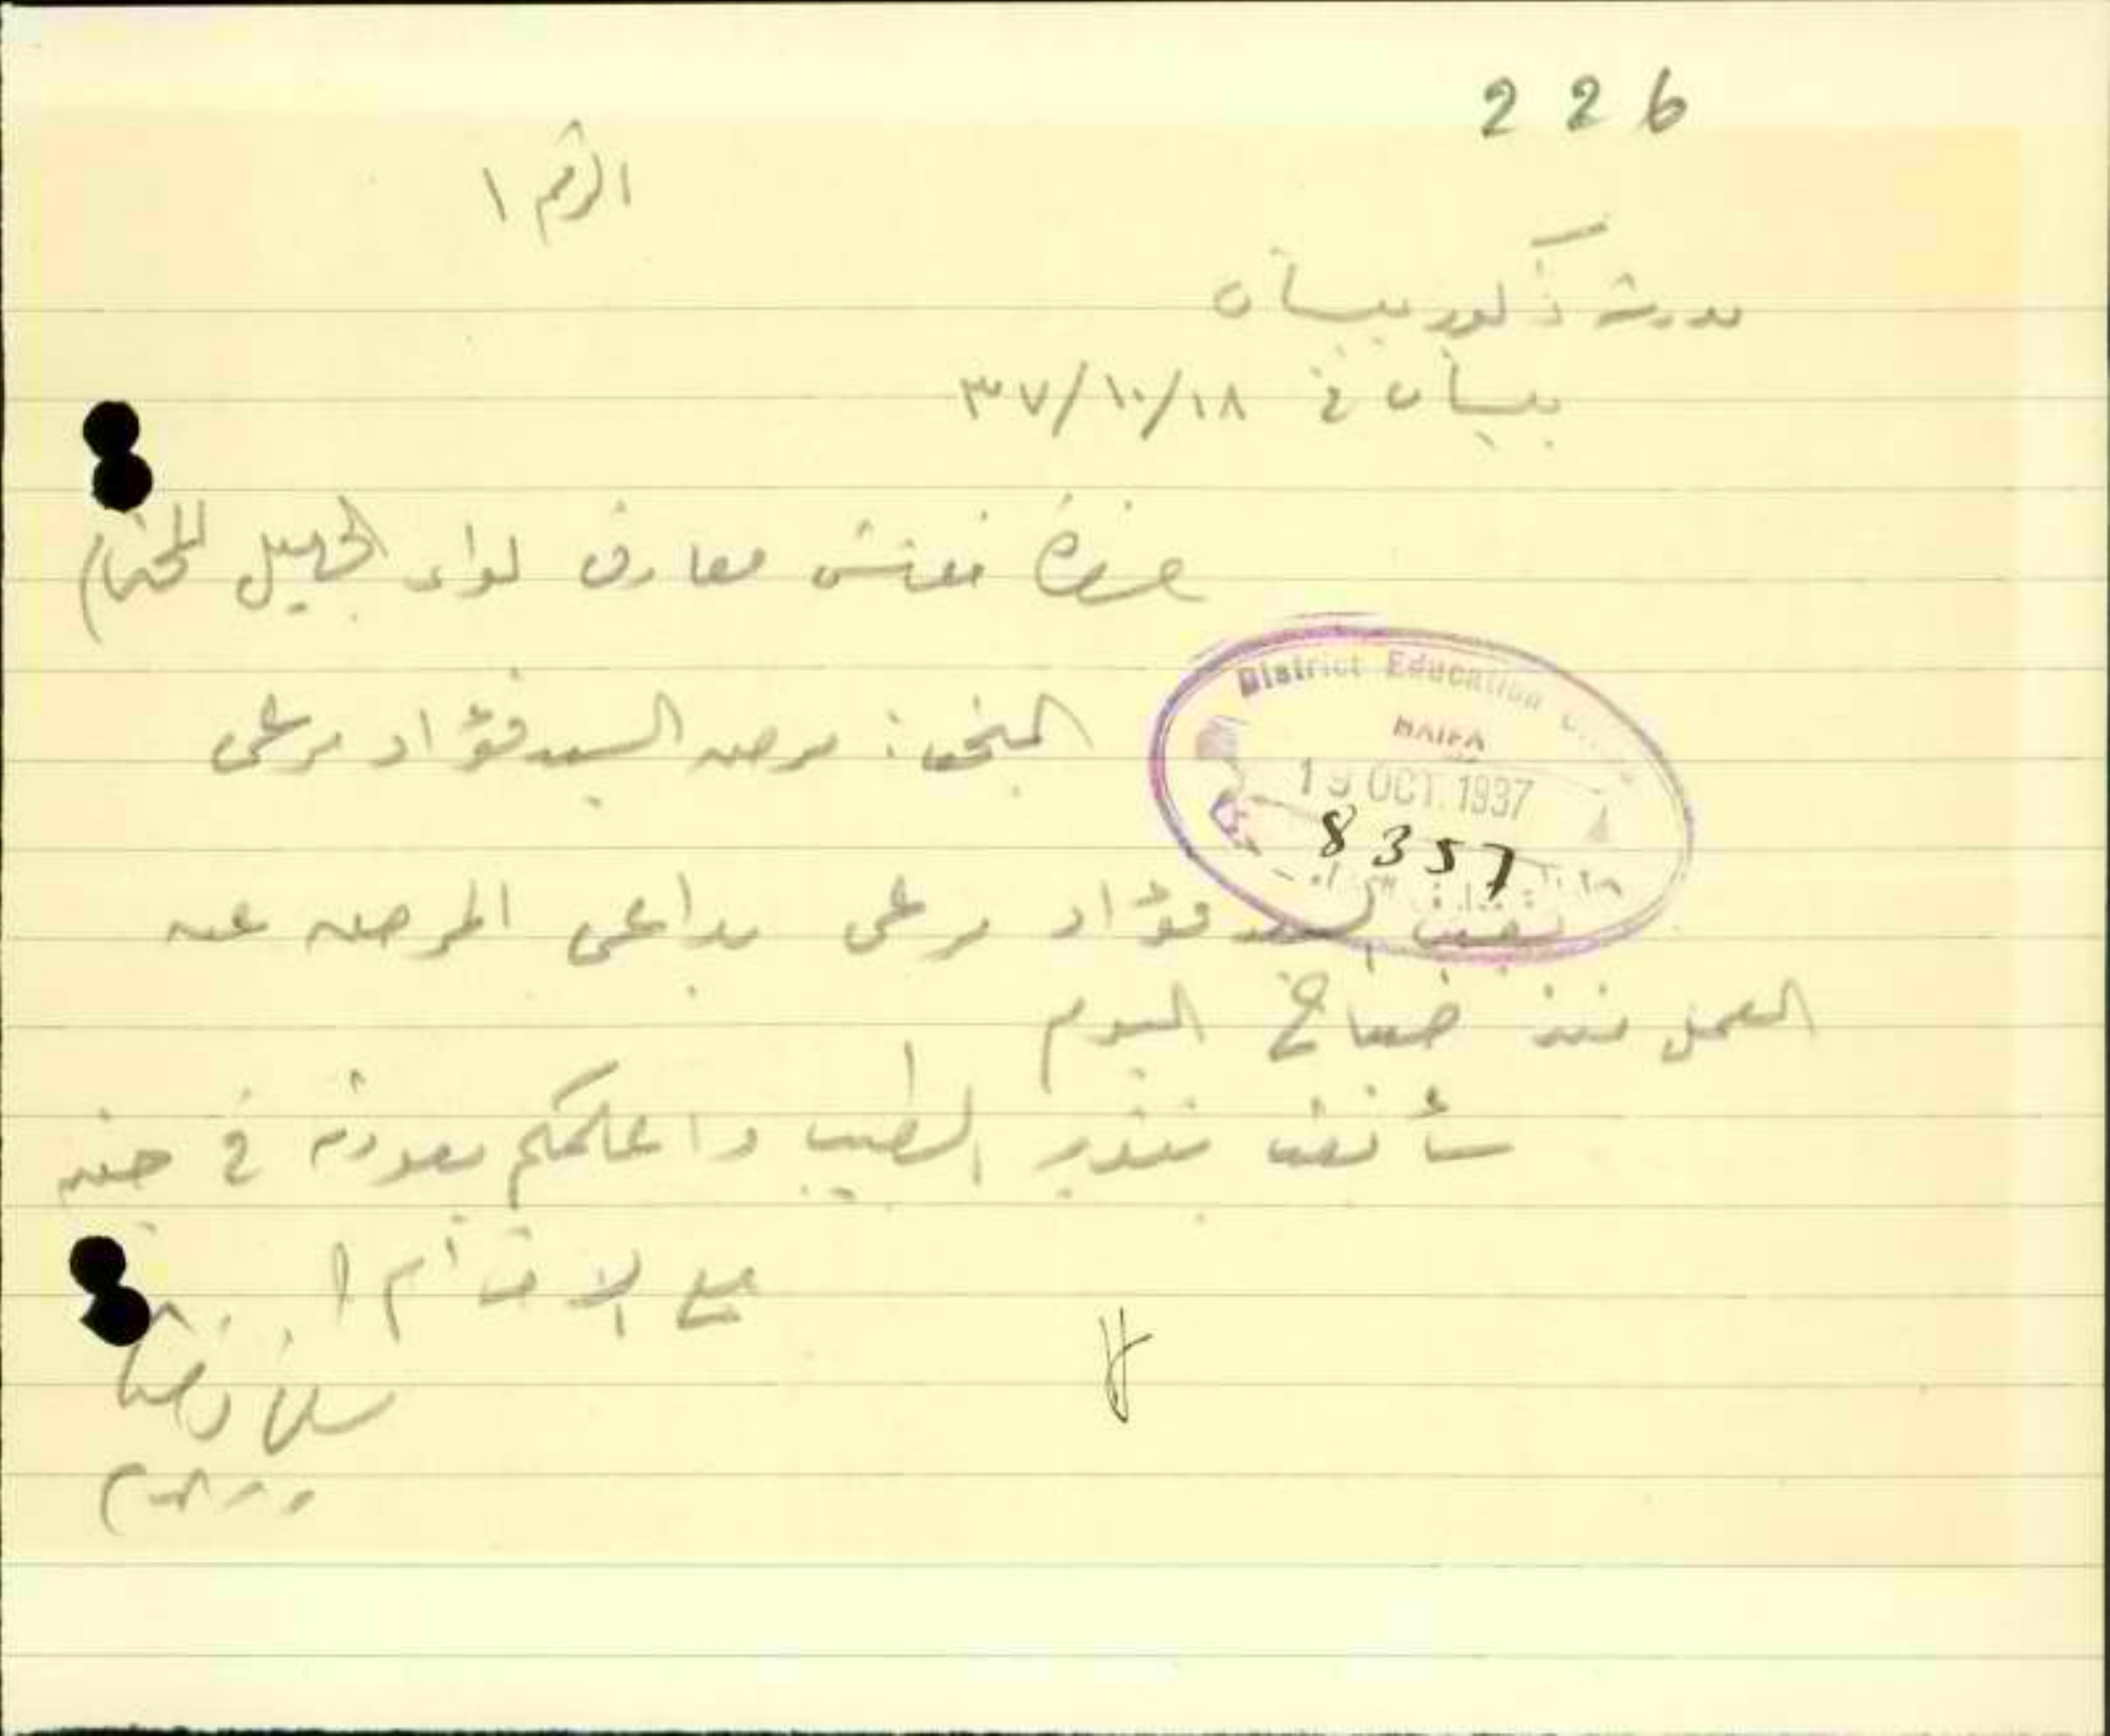 226
الرقم ١
مدرسة ذكور بيسان
بيسان في ١٨/١٠/٣٧
حضرة مفتش معارف لواء الجليل المحترم
المبحث: مرض السيد فؤاد مرعي
District Education
HAIFA
19 OCT. 1937
8357
تغيب السيد فؤاد مرعي بداعي المرض عن
العمل منذ صباح اليوم
سأبعث بتقرير الطبيب واعلمكم بعودته في حينه
مع الاحترام